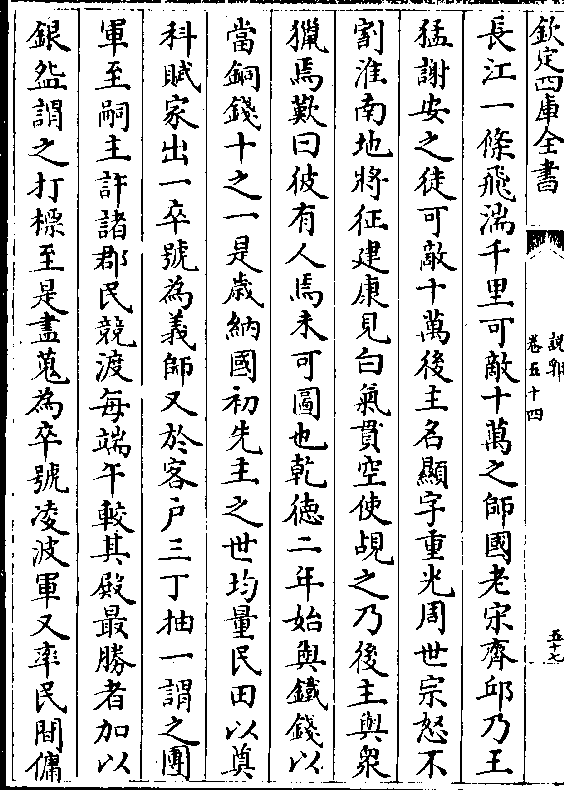 欽定四庫全書
說郛
卷五十四
五十七
長江一條飛湍千里可敵十萬之師國老宋齊邱乃王
猛謝安之徒可敵十萬後主名顯字重光周世宗怒不
割淮南地將征建康見白氣貫空使覘之乃後主與衆
獵焉歎曰彼有人焉未可圖也乾徳二年始與鐵錢以
當銅錢十之一是歲納國初先主之世均量民田以奠
科賦家出一卒號為義師又於客户三丁抽一謂之團
軍至嗣主許諸郡民競渡每端午較其殿最勝者加以
銀盌謂之打標至是盡蒐為卒號凌波軍又率民間傭